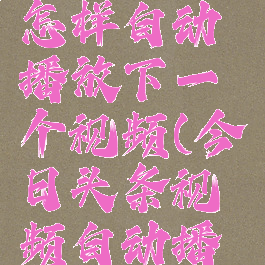 怎样自动
播放下一
个视频(今
日头条视
频自动播